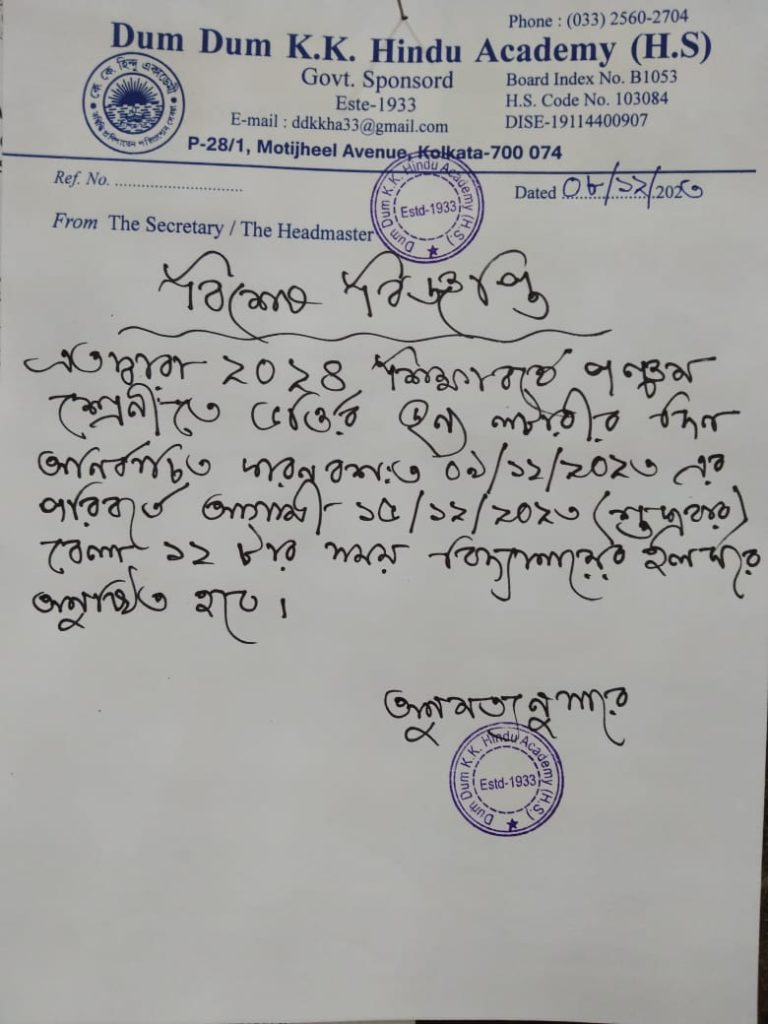 Phone : (033) 2560-2704
Dum Dum K.K. Hindu Academy (H.S)
Govt. Sponsord
Este-1933
E-mail : ddkkha33@gmail.com
Board Index No. B1053
H.S. Code No. 103084
DISE-19114400907
P-28/1, Motijheel Avenue, Kolkata-700 074
Ref. No. ............................
Dated ০৮/১২/2023
From The Secretary / The Headmaster
Dum Dum K.K. Hindu Academy (H.S.)
Estd-1933
বিশেষ বিজ্ঞপ্তি
এতদ্বারা ২০২৪ শিক্ষাবর্ষে পঞ্চম
শ্রেনীতে ভর্ত্তির জন্য লটারীর দিন
অনির্বায্যিত কারনবশতঃ ০৯/১২/২০২৩ এর
পরিবর্তে আগামী ১৫/১২/২০২৩ (শুক্রবার)
বেলা ১২ টার সময় বিদ্যালয়ের হলঘরে
অনুষ্ঠিত হবে ।
অনুমত্যানুসারে
Dum Dum K.K. Hindu Academy (H.S.)
Estd-1933